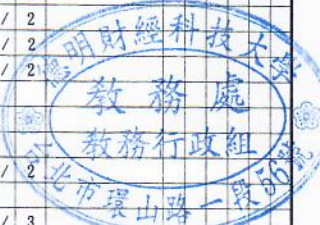 / 2
/ 2
/ 2
德明財經科技大學
教務處
教務行政組
台北市環山路一段56號
/ 2
/ 3